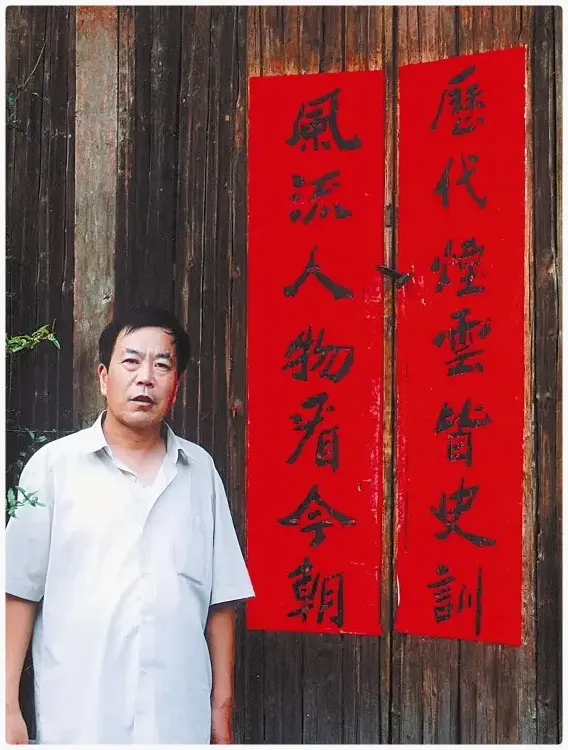 歷代煙雲皆史訓
風流人物看今朝